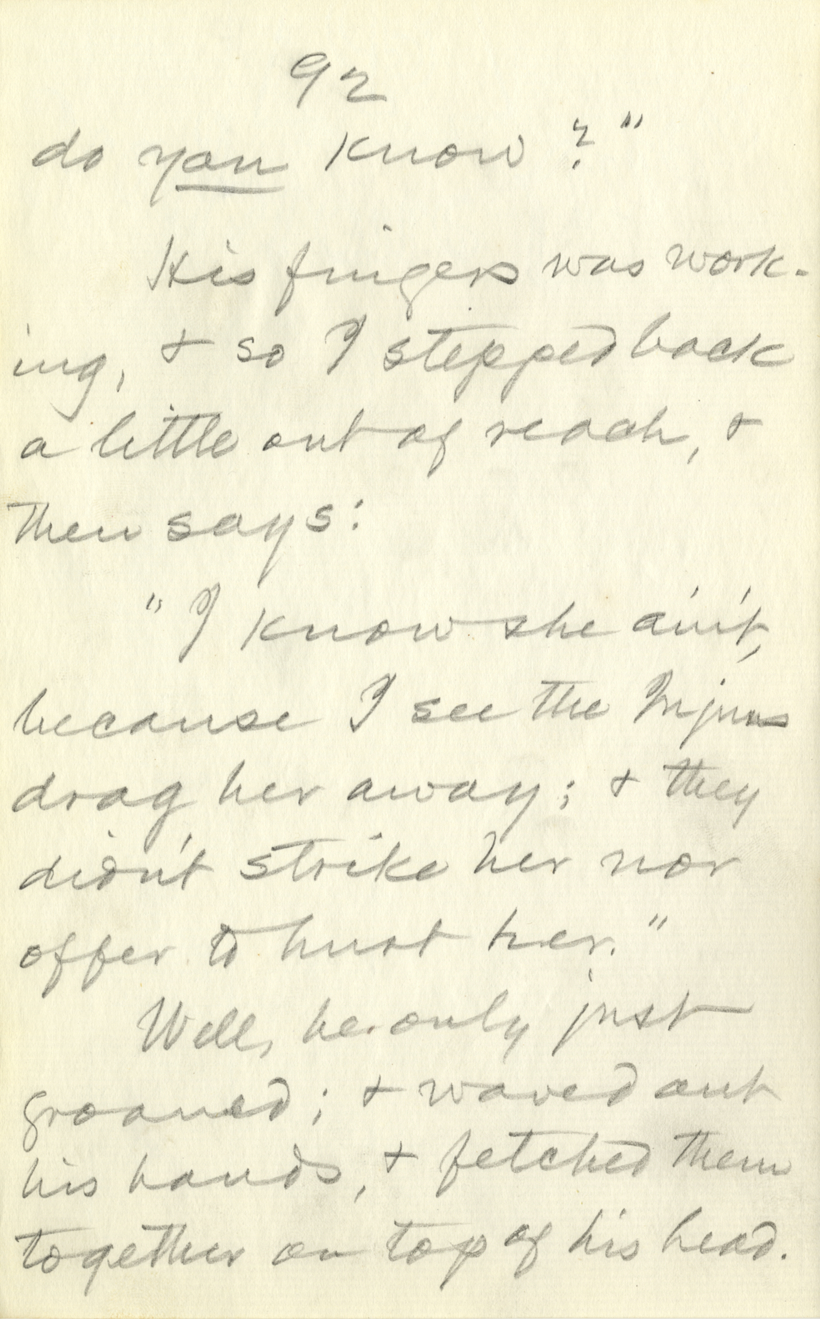 92
do you know?"
His fingers was work-
ing, & so I stepped back
a little out of reach, &
then says:
"I know she ain't,
because I see the Injuns
drag her away; & they
didn't strike her nor
offer to hurt her."
Well, he only just
groaned; & waved out
his hands, & fetched them
together on top of his head.